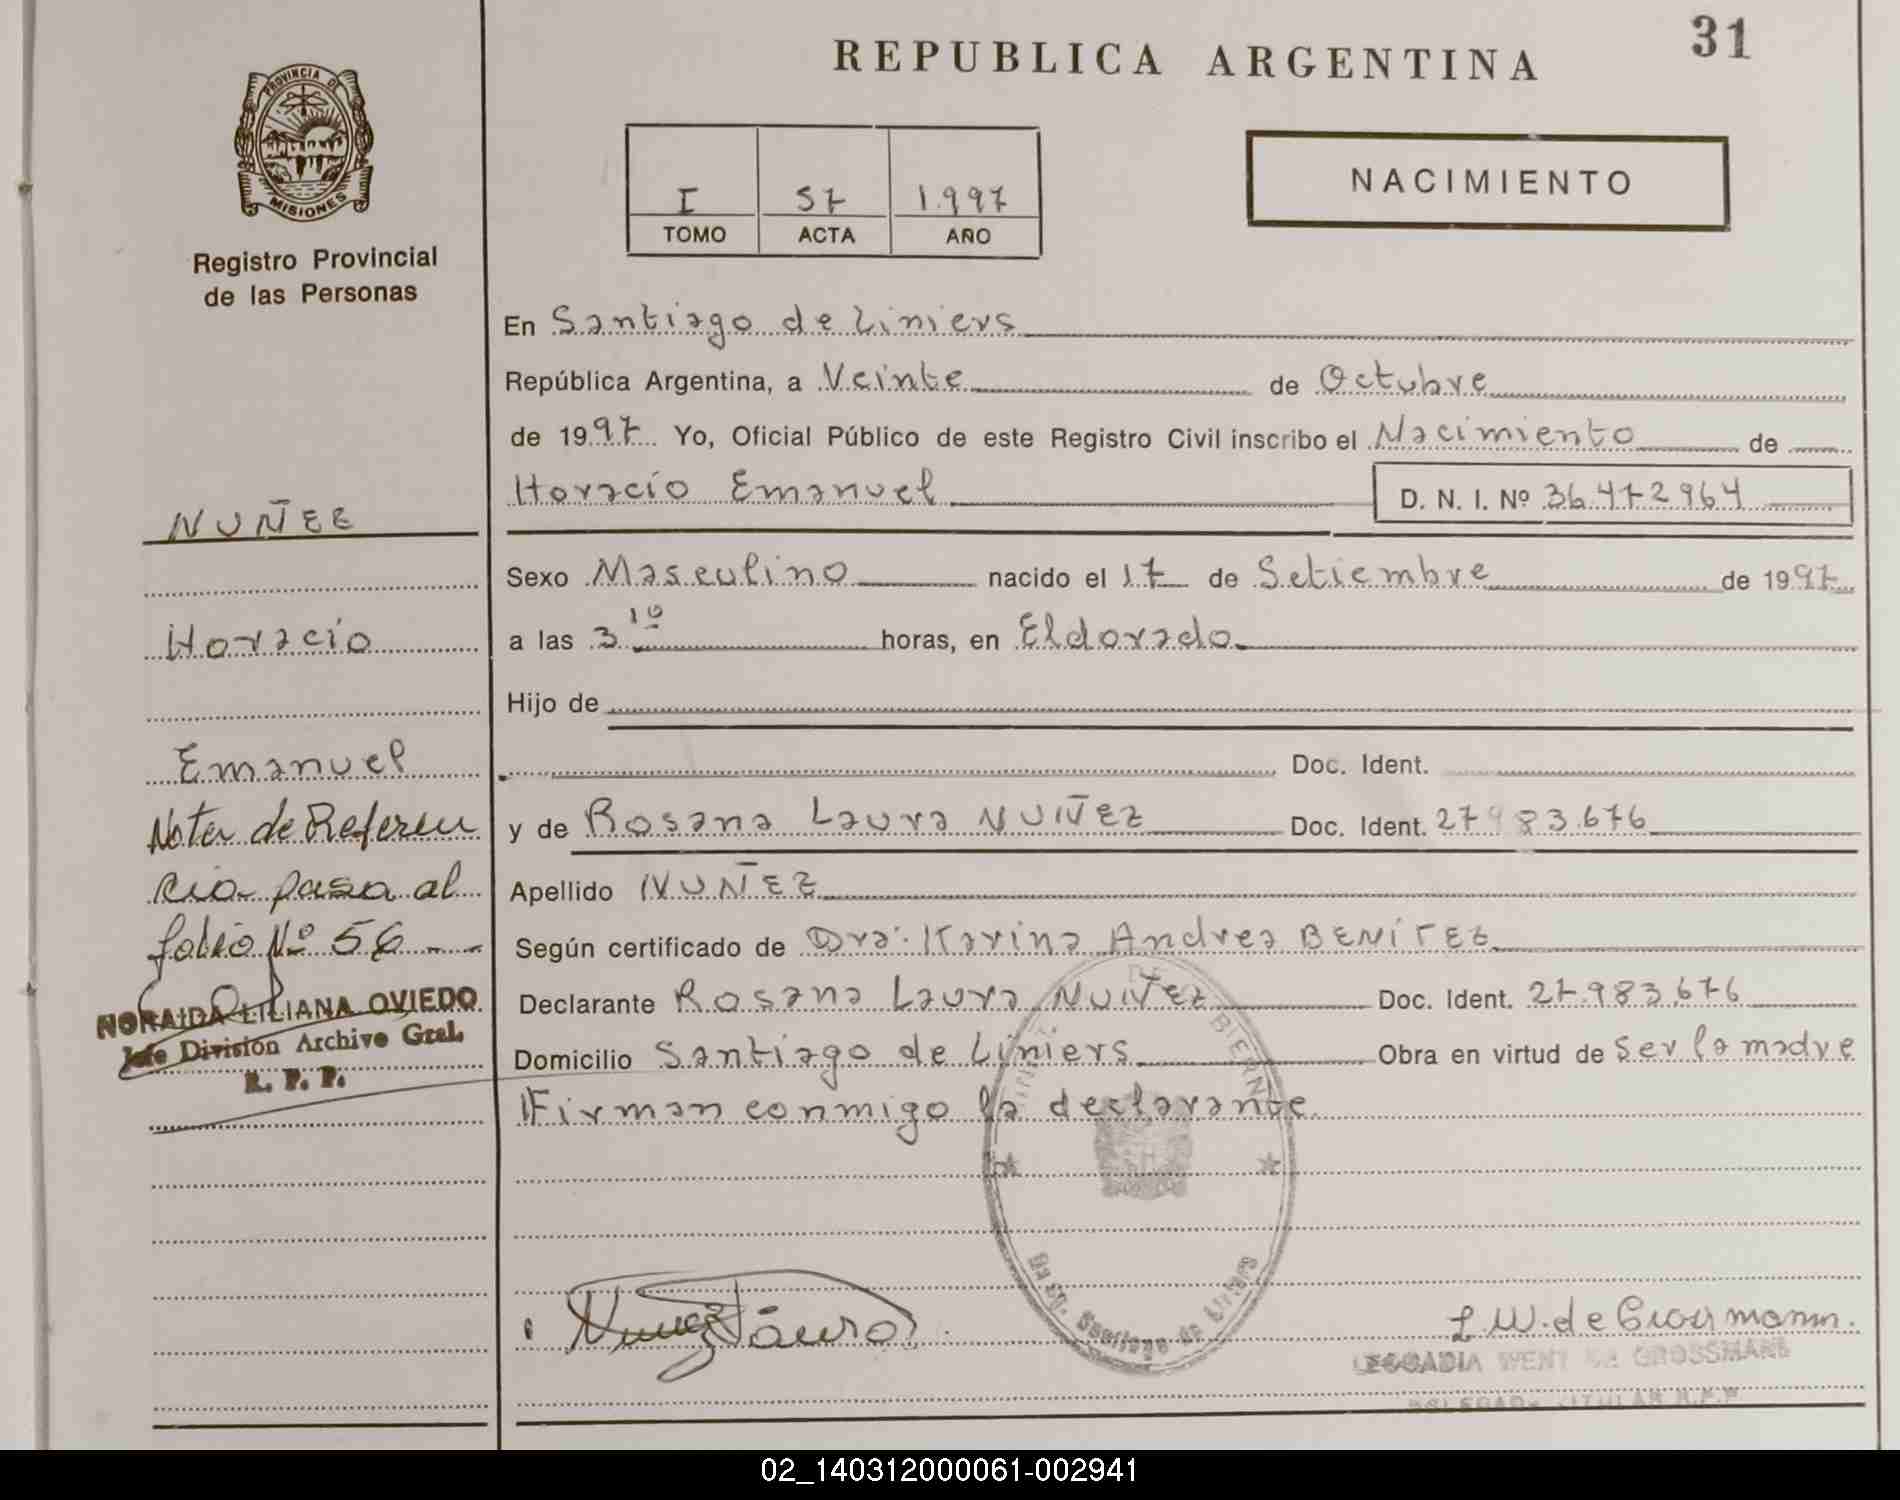 31
REPUBLICA ARGENTINA
PROVINCIA DE
MISIONES
Registro Provincial
de las Personas
I 57 1.997
TOMO ACTA AÑO
NACIMIENTO
En Santiago de Liniers
República Argentina, a Veinte de Octubre
de 1997 Yo, Oficial Público de este Registro Civil inscribo el Nacimiento de
Horacio Emanuel D. N. I. Nº 36.472964
Sexo Masculino nacido el 17 de Setiembre de 1997
a las 3 10 horas, en Eldorado
Hijo de
Doc. Ident.
y de Rosana Laura NUÑEZ Doc. Ident. 27983.676
Apellido NUÑEZ
Según certificado de Dra. Karina Andrea BENÍTEZ
Declarante Rosana Laura NUÑEZ Doc. Ident. 27.983.676
Domicilio Santiago de Liniers Obra en virtud de Ser la madre
Firman conmigo la declarante
NUÑEZ
Horacio
Emanuel
Nota de Referen
cia pasa al
folio Nº 56
NORAIDA LILIANA OVIEDO
Jefe División Archivo Gral.
R. P. P.
Nuñez Laura
L.W. de Grossmann.
LEOCADIA WENT DE GROSSMANN
DELEGADA TITULAR R.P.P
02_140312000061-002941